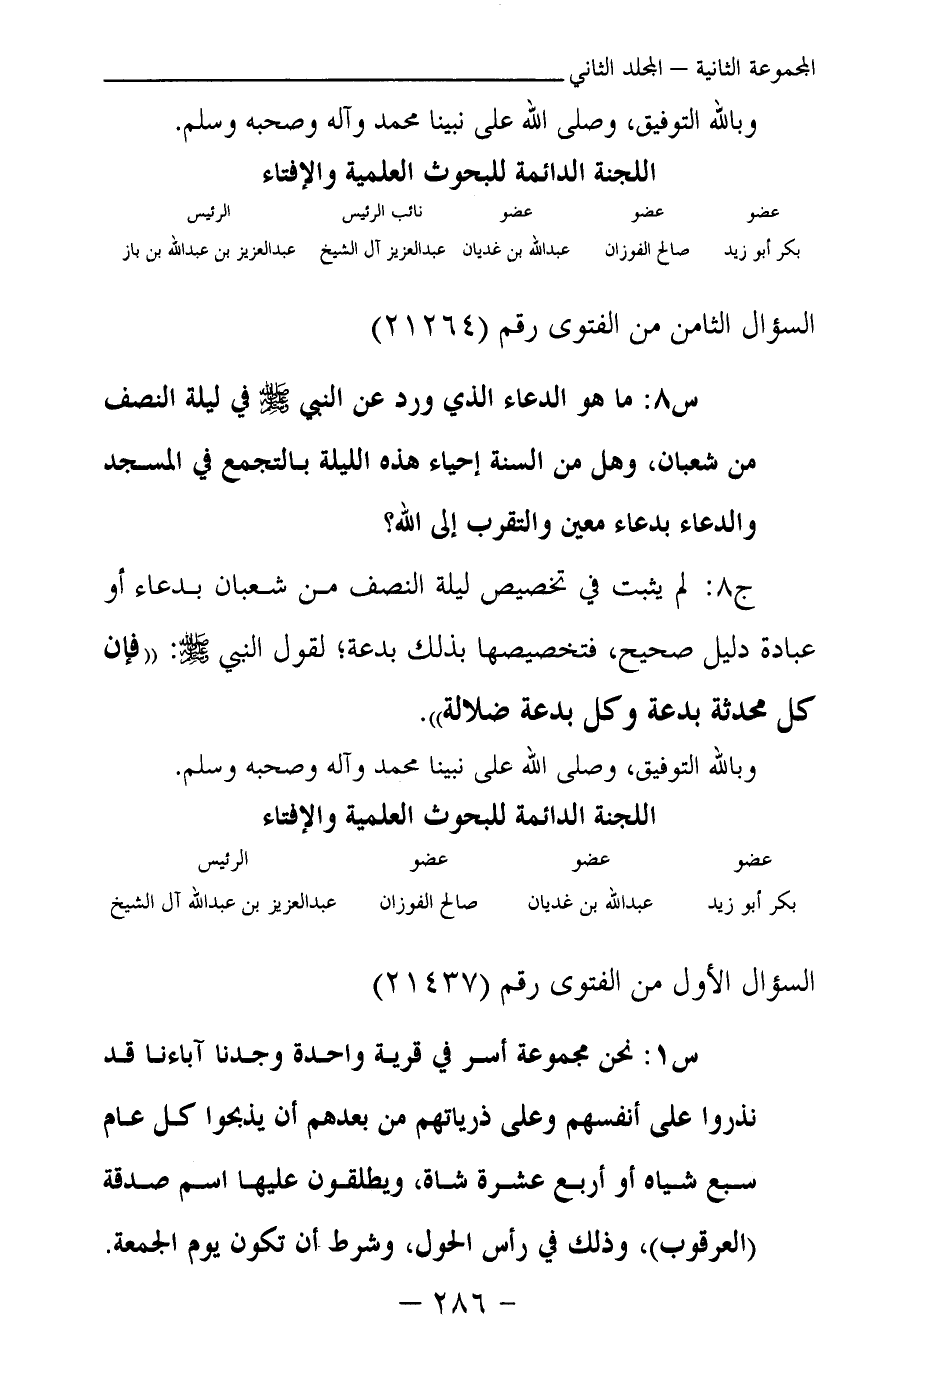 المجموعة الثانية – المجلد الثاني
وبالله التوفيق، وصلى الله على نبينا محمد وآله وصحبه وسلم.
اللجنة الدائمة للبحوث العلمية والإفتاء
عضو عضو عضو نائب الرئيس الرئيس
بكر أبو زيد صالح الفوزان عبدالله بن غديان عبدالعزيز آل الشيخ عبدالعزيز بن عبدالله بن باز
السؤال الثامن من الفتوى رقم (٢١٢٦٤)
س٨: ما هو الدعاء الذي ورد عن النبي ﷺ في ليلة النصف
من شعبان، وهل من السنة إحياء هذه الليلة بالتجمع في المسجد
والدعاء بدعاء معين والتقرب إلى الله؟
ج٨: لم يثبت في تخصيص ليلة النصف من شعبان بدعاء أو
عبادة دليل صحيح، فتخصيصها بذلك بدعة؛ لقول النبي ﷺ: ((فإن
كل محدثة بدعة وكل بدعة ضلالة)).
وبالله التوفيق، وصلى الله على نبينا محمد وآله وصحبه وسلم.
اللجنة الدائمة للبحوث العلمية والإفتاء
عضو عضو عضو الرئيس
بكر أبو زيد عبدالله بن غديان صالح الفوزان عبدالعزيز بن عبدالله آل الشيخ
السؤال الأول من الفتوى رقم (٢١٤٣٧)
س١: نحن مجموعة أسر في قرية واحدة وجدنا آباءنا قد
نذروا على أنفسهم وعلى ذرياتهم من بعدهم أن يذبحوا كل عام
سبع شياه أو أربع عشرة شاة، ويطلقون عليها اسم صدقة
(العرقوب)، وذلك في رأس الحول، وشرط أن تكون يوم الجمعة.
– ٢٨٦ –